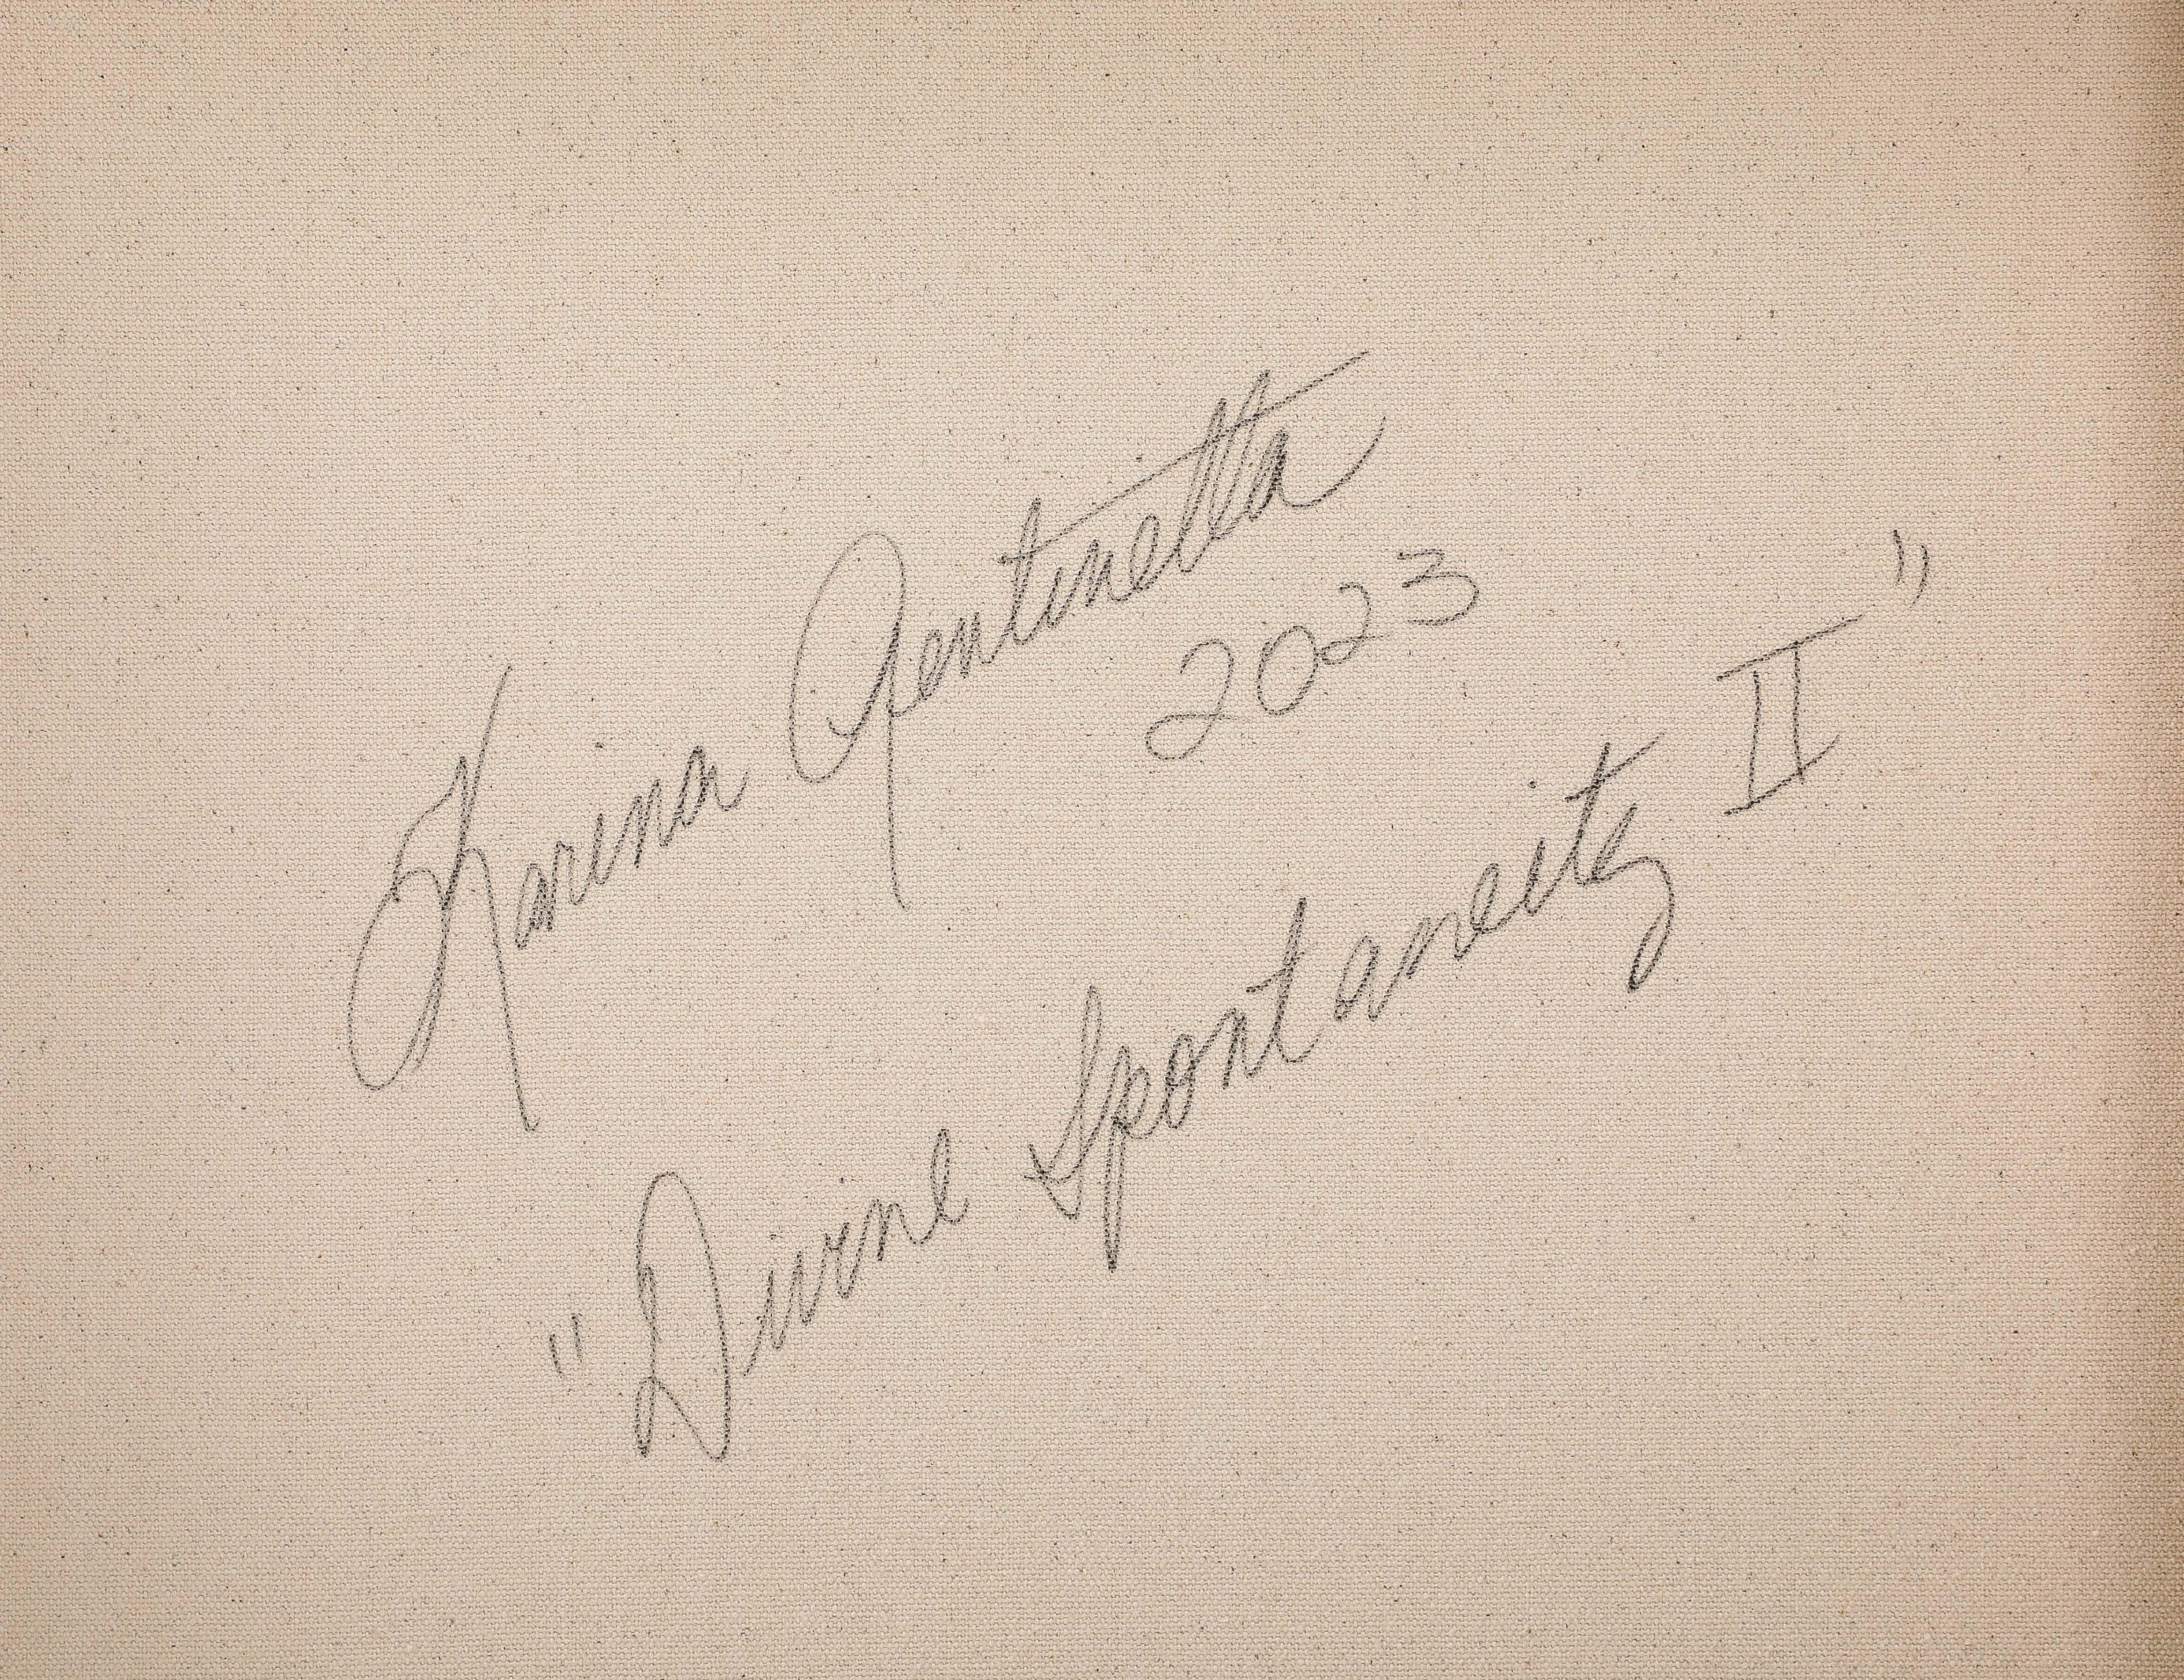 Karina Gentinetta
2023
"Divine Spontaneity II"